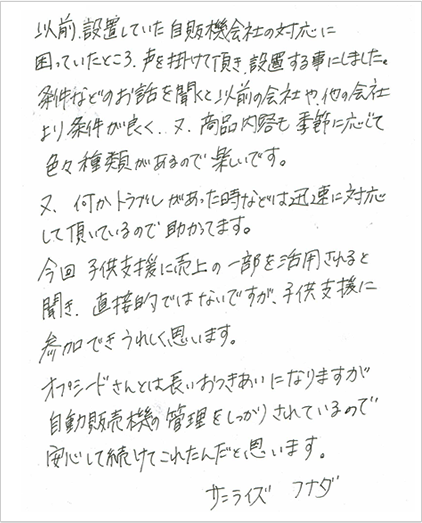 以前、設置していた自販機会社の対応に
困っていたところ、声を掛けて頂き、設置する事にしました。
条件などのお話を聞くと以前の会社や、他の会社
より条件が良く、又、商品内容も季節に応じて
色々種類があるので楽しいです。
又、何かトラブルがあった時などは迅速に対応
して頂いているので助かてます。
今回子供支援に売上の一部を活用されると
聞き、直接的ではないですが、子供支援に
参加できうれしく思います。
オプシードさんとは長いおつきあいになりますが
自動販売機の管理をしっかりされているので
安心して続けてこれたんだと思います。
サンライズ フナダ